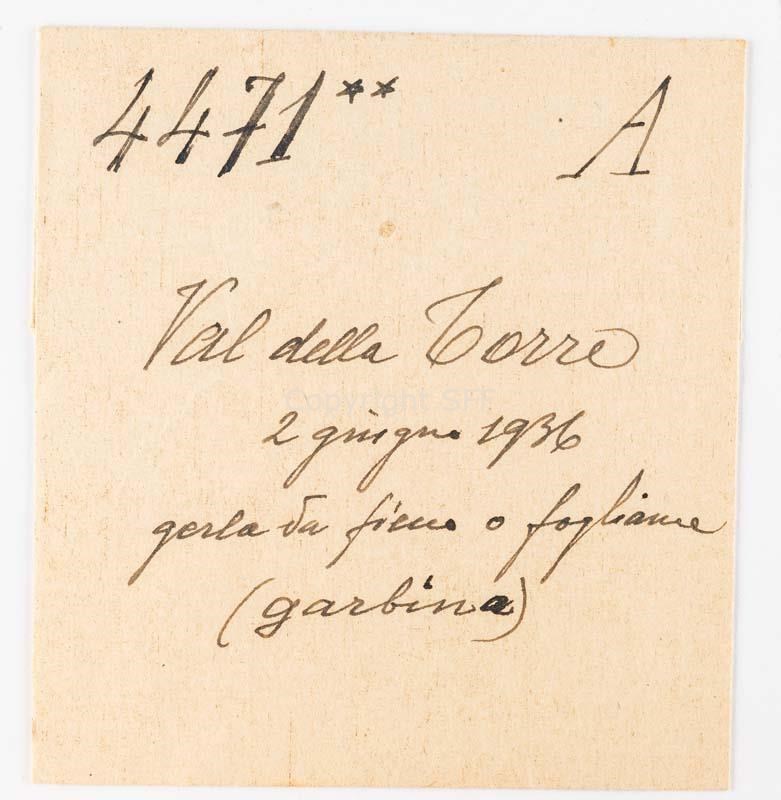 4471** A
Val della Torre
Copyright SPF
2 giugno 1936
gerla da fieno o fogliame
(garbina)